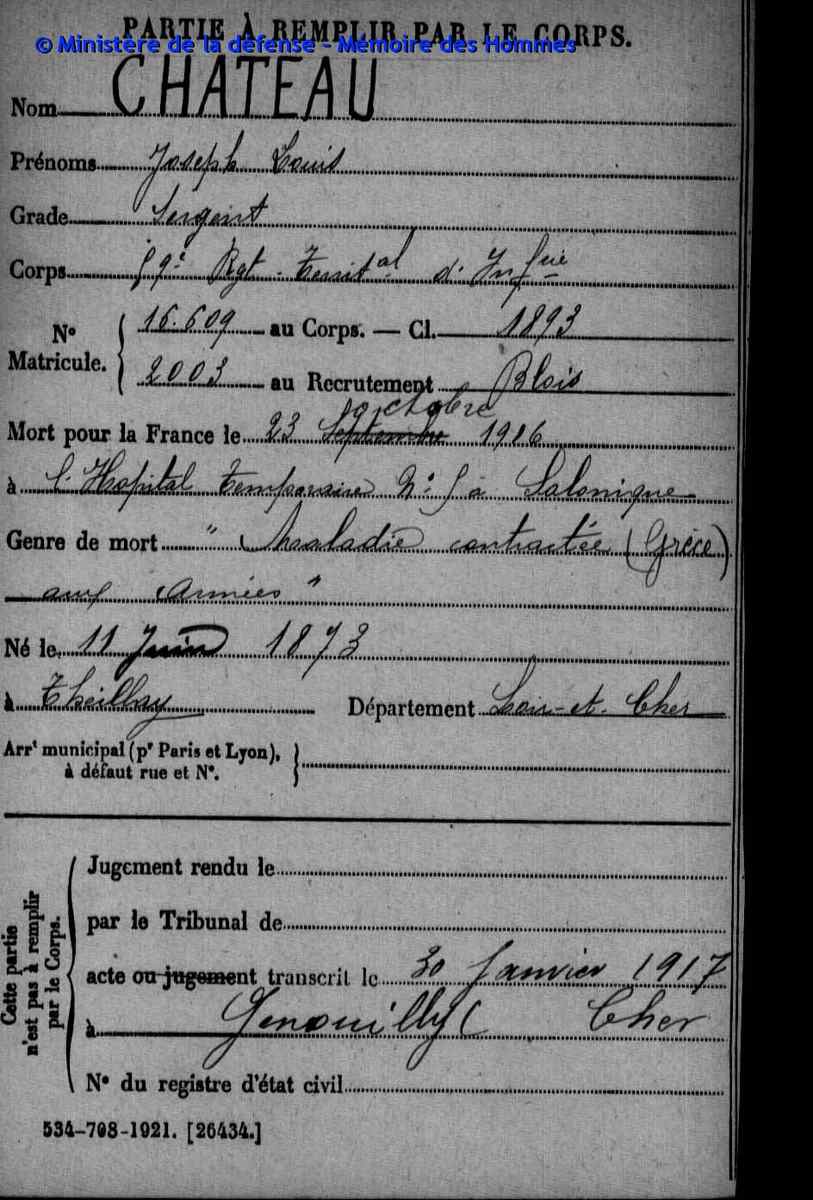 PARTIE À REMPLIR PAR LE CORPS.
© Ministère de la défense - Mémoire des Hommes
Nom CHATEAU
Prénoms Joseph Louis
Grade Sergent
Corps 59e Rgt. Territal d'Infrie
No Matricule. 16.609 au Corps. — Cl. 1893
2003 au Recrutement Blois
octobre
Mort pour la France le 23 Septembre 1916
à l'Hopital temporaire No 5 à Salonique
Genre de mort " Maladie contractée (Grèce)
aux Armées "
Né le 11 Juin 1873
à Theillay Département Loir-et-Cher
Arrt municipal (pr Paris et Lyon), à défaut rue et No.
Cette partie n'est pas à remplir par le Corps.
Jugement rendu le
par le Tribunal de
acte ou jugement transcrit le 30 Janvier 1917
à Genouilly ( Cher
No du registre d'état civil
534-708-1921. [26434.]